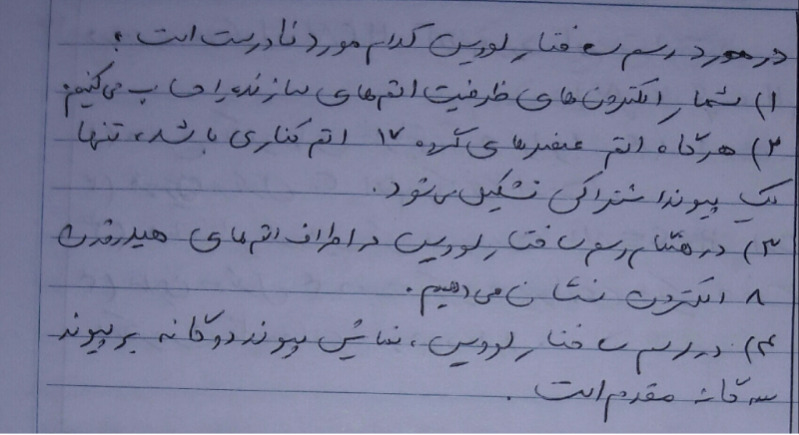 در مورد رسم ساختار لوویس کدام مورد نادرست است؟
۱) شمار الکترون های ظرفیت اتم های سازنده را حساب می کنیم.
۲) هرگاه اتم عنصرهای گروه ۱۷ اتم کناری باشد، تنها
یک پیوند اشتراکی تشکیل می شود.
۳) در هنگام رسم ساختار لوویس در اطراف اتم های هیدروژن
۸ الکترون نشان می دهیم.
۴) در رسم ساختار لوویس، نمایش پیوند دوگانه بر پیوند
سه گانه مقدم است.